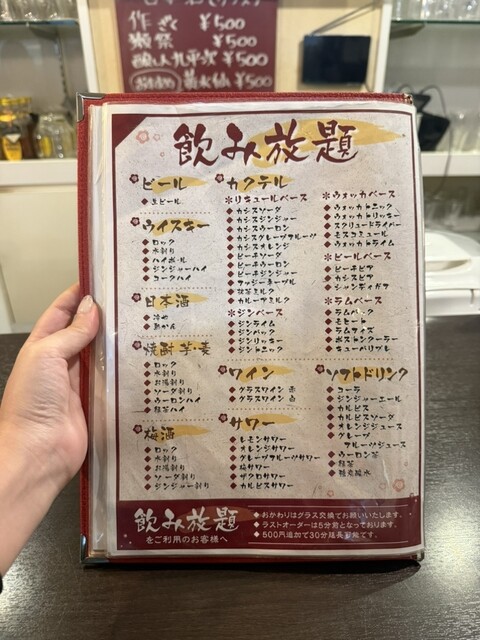 作 ざく ¥500
獺祭 ¥500
醸し人九平次 ¥500
¥500
飲み放題
ビール
生ビール
ウイスキー
ロック
水割り
ハイボール
ジンジャーハイ
コークハイ
日本酒
冷や
熱かん
焼酎 芋・麦
ロック
水割り
お湯割り
ソーダ割り
ウーロンハイ
緑茶ハイ
梅酒
ロック
水割り
お湯割り
ソーダ割り
ジンジャー割り
カクテル
リキュールベース
カシスソーダ
カシスジンジャー
カシスウーロン
カシスグレープフルーツ
カシスオレンジ
ピーチソーダ
ピーチウーロン
ピーチジンジャー
ファジーネーブル
抹茶ミルク
カルーアミルク
ジンベース
ジンライム
ジンバック
ジンリッキー
ジントニック
ウォッカベース
ウォッカトニック
ウォッカリッキー
スクリュードライバー
モスコミュール
ウォッカライム
ビールベース
ピーチビア
カシスビア
シャンディガフ
ラムベース
ラムバック
モヒート
ラムライズ
ボストンクーラー
キューバリブレ
ワイン
グラスワイン 赤
グラスワイン 白
サワー
レモンサワー
オレンジサワー
グレープフルーツサワー
梅サワー
ザクロサワー
カルピスサワー
ソフトドリンク
コーラ
ジンジャーエール
カルピス
カルピスソーダ
オレンジジュース
グレープ
フルーツジュース
ウーロン茶
緑茶
強炭酸水
飲み放題
をご利用のお客様へ
おかわりはグラス交換でお願いいたします。
ラストオーダーは5分前となっております。
500円追加で30分延長可能です。